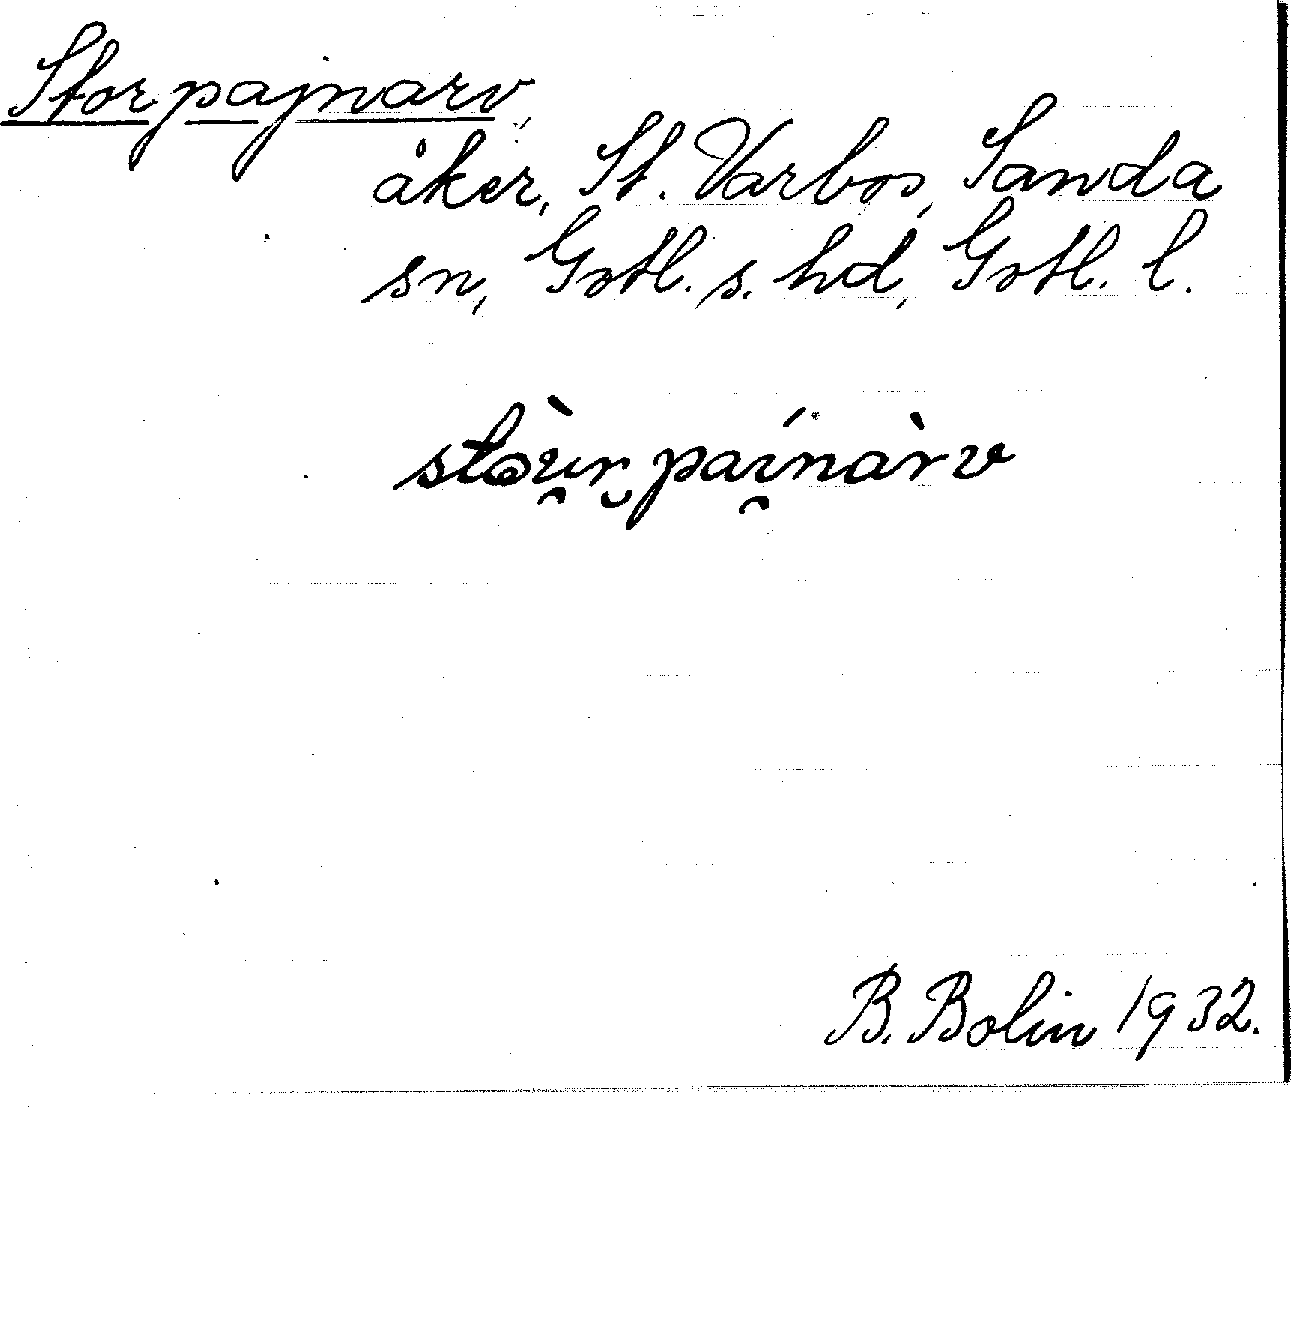 Storpajnarv,
åker, St. Varbos, Sanda
sn, Gotl. s. hd, Gotl. l.
stòu̯r̯paí̯nàrv
B. Bolin 1932.